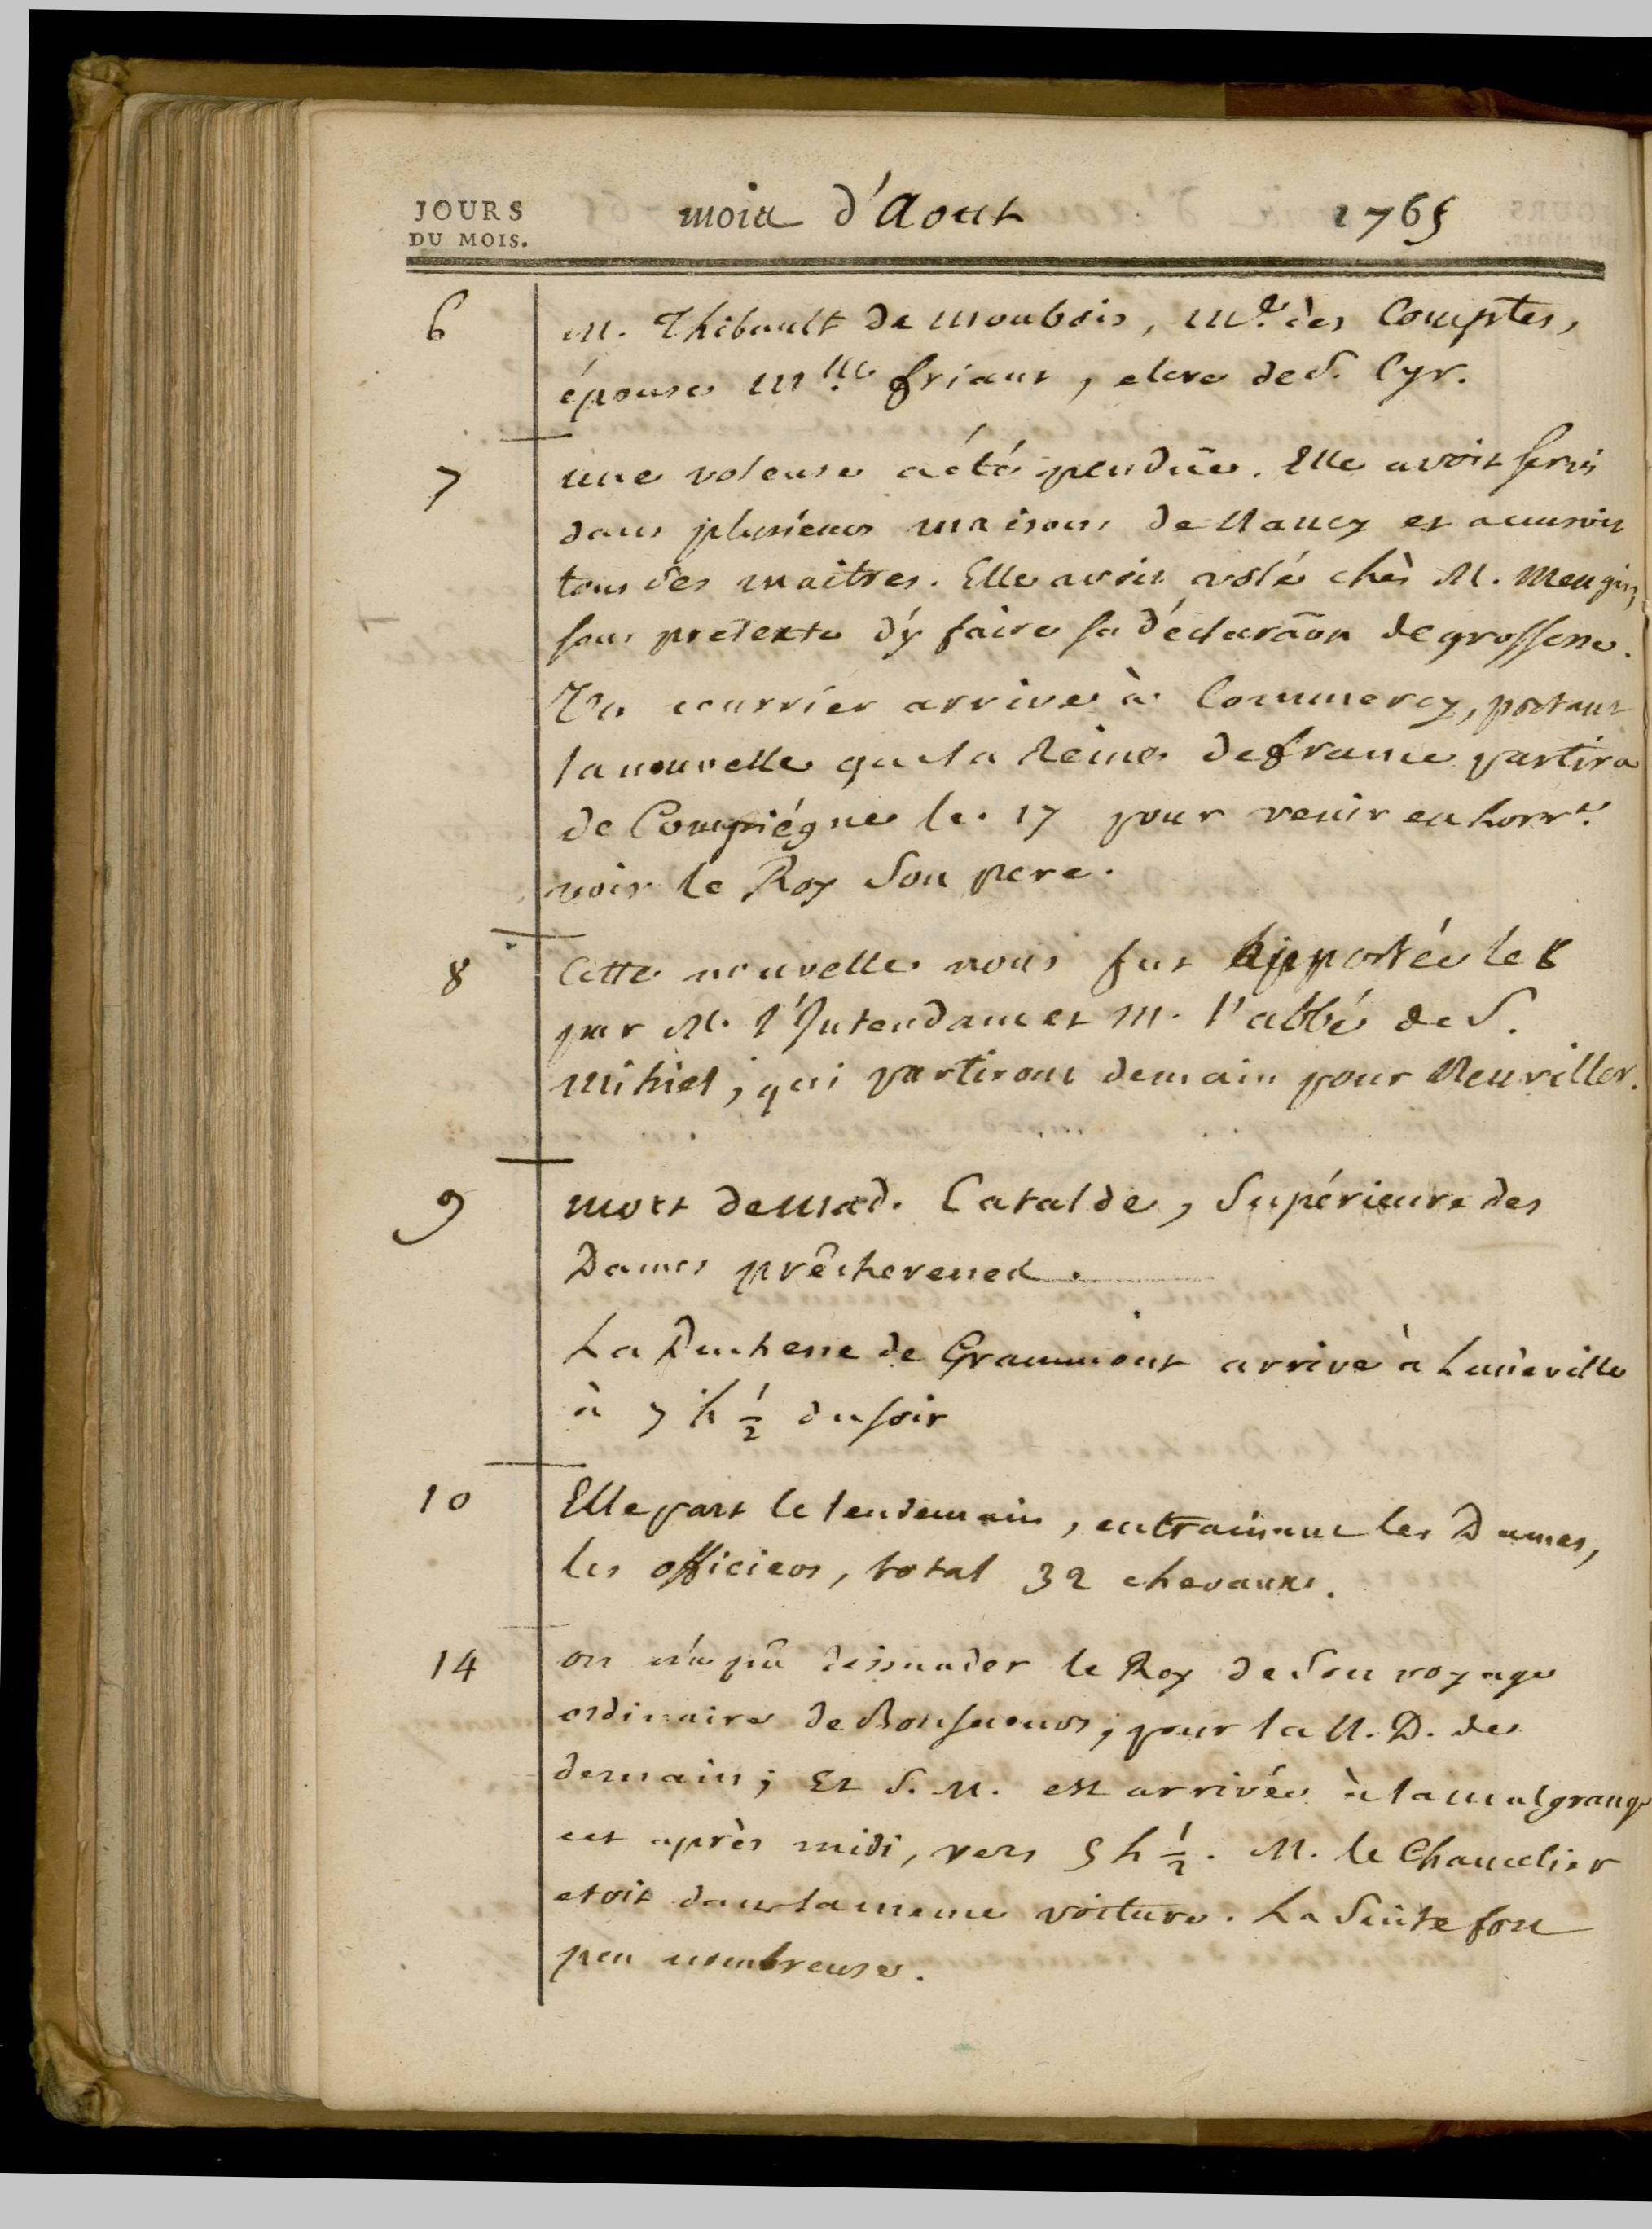 JOURS
DU MOIS.
mois d'Aout 1765
6 M. Thibault de Monbois, Me. des Comptes,
épouse Mlle friant, eleve de S. Cyr.
7 une voleuse a été pendüe. Elle avoit servi
dans plusieurs maisons de Nancy et accusoit
tous ses maitres. Elle avoit volé chès M. Mengin,
sous pretexte d'y faire sa déclaraõn de grossesse.
Un courrier arrive à Commercy, portant
la nouvelle que la Reine de france partira
de Compiégne le 17 pour venir en Lorr.e
voir le Roy Son pere.
8 Cette nouvelle nous fut apportée le 8
par M. l'Intendant et M. l'abbé de S.
Mihiel, qui partiront demain pour Neuviller.
9 mort de Mad. Catalde, Supérieure des
Dames prêcheresses.
La Duchesse de Grammont arrive à Luneville
à 7 h 1/2 du soir
10 Elle part le lendemain, entrainant les Dames,
les officiers, total 32 chevaux.
14 on n'a pû dissuader le Roy de Son voyage
ordinaire de Bonsecours, pour la N. D. de
demain; Et S. M. est arrivée à la malgrange
cet après midi, vers 5 h 1/2. M. le Chancelier
etoit dans la meme voiture. La Suite fort
peu nombreuse.